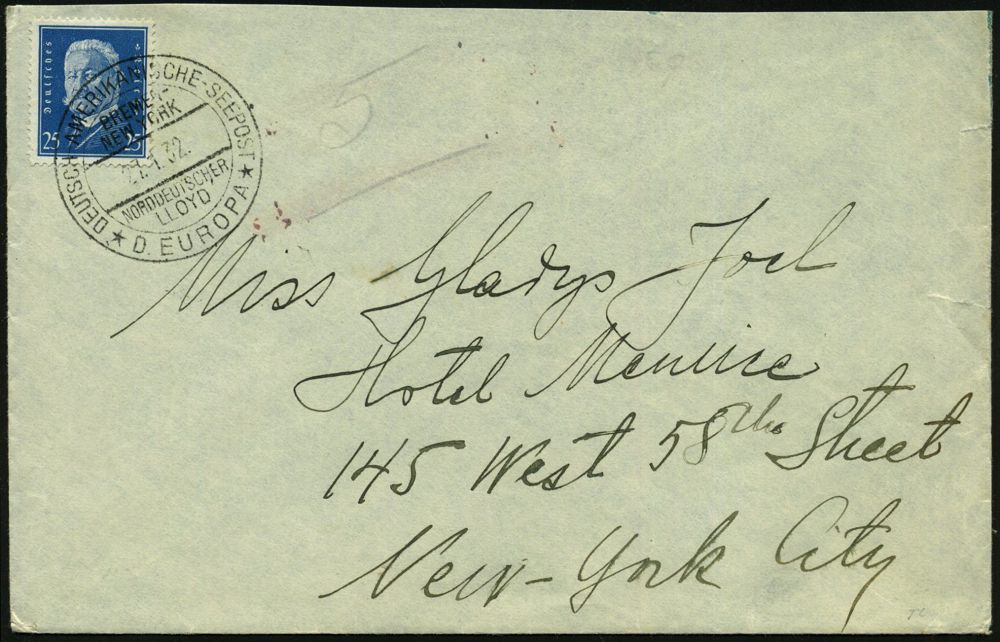 Deutsches Reich
25 25
DEUTSCH-AMERIKANISCHE-SEEPOST
BREMEN-
NEW YORK
1.32.
NORDDEUTSCHER
LLOYD
★ D. EUROPA ★
5
Miss Gladys Joel
Hotel Meurice
145 West 58th Street
New-York City